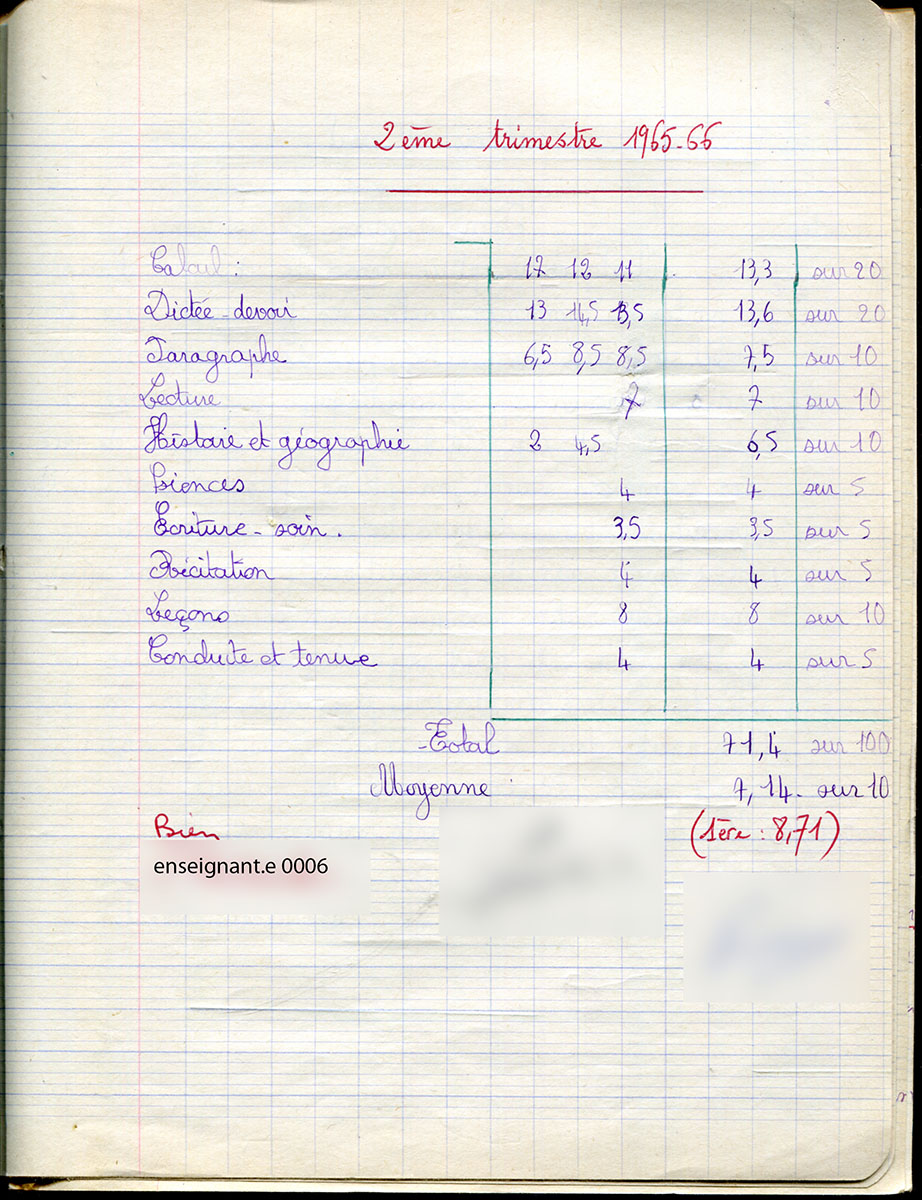 2ème trimestre 1965-66
Calcul : 17 12 11 13,3 sur 20
Dictée - devoir 13 14,5 13,5 13,6 sur 20
Paragraphe 6,5 8,5 8,5 7,5 sur 10
Lecture 7 7 sur 10
Histoire et géographie 2 4,5 6,5 sur 10
Sciences 4 4 sur 5
Écriture - soin. 3,5 3,5 sur 5
Récitation 4 4 sur 5
Leçons 8 8 sur 10
Conduite et tenue 4 4 sur 5
Total 71,4 sur 100
Moyenne 7,14. sur 10
Bien (1ère : 8,71)
enseignant.e 0006